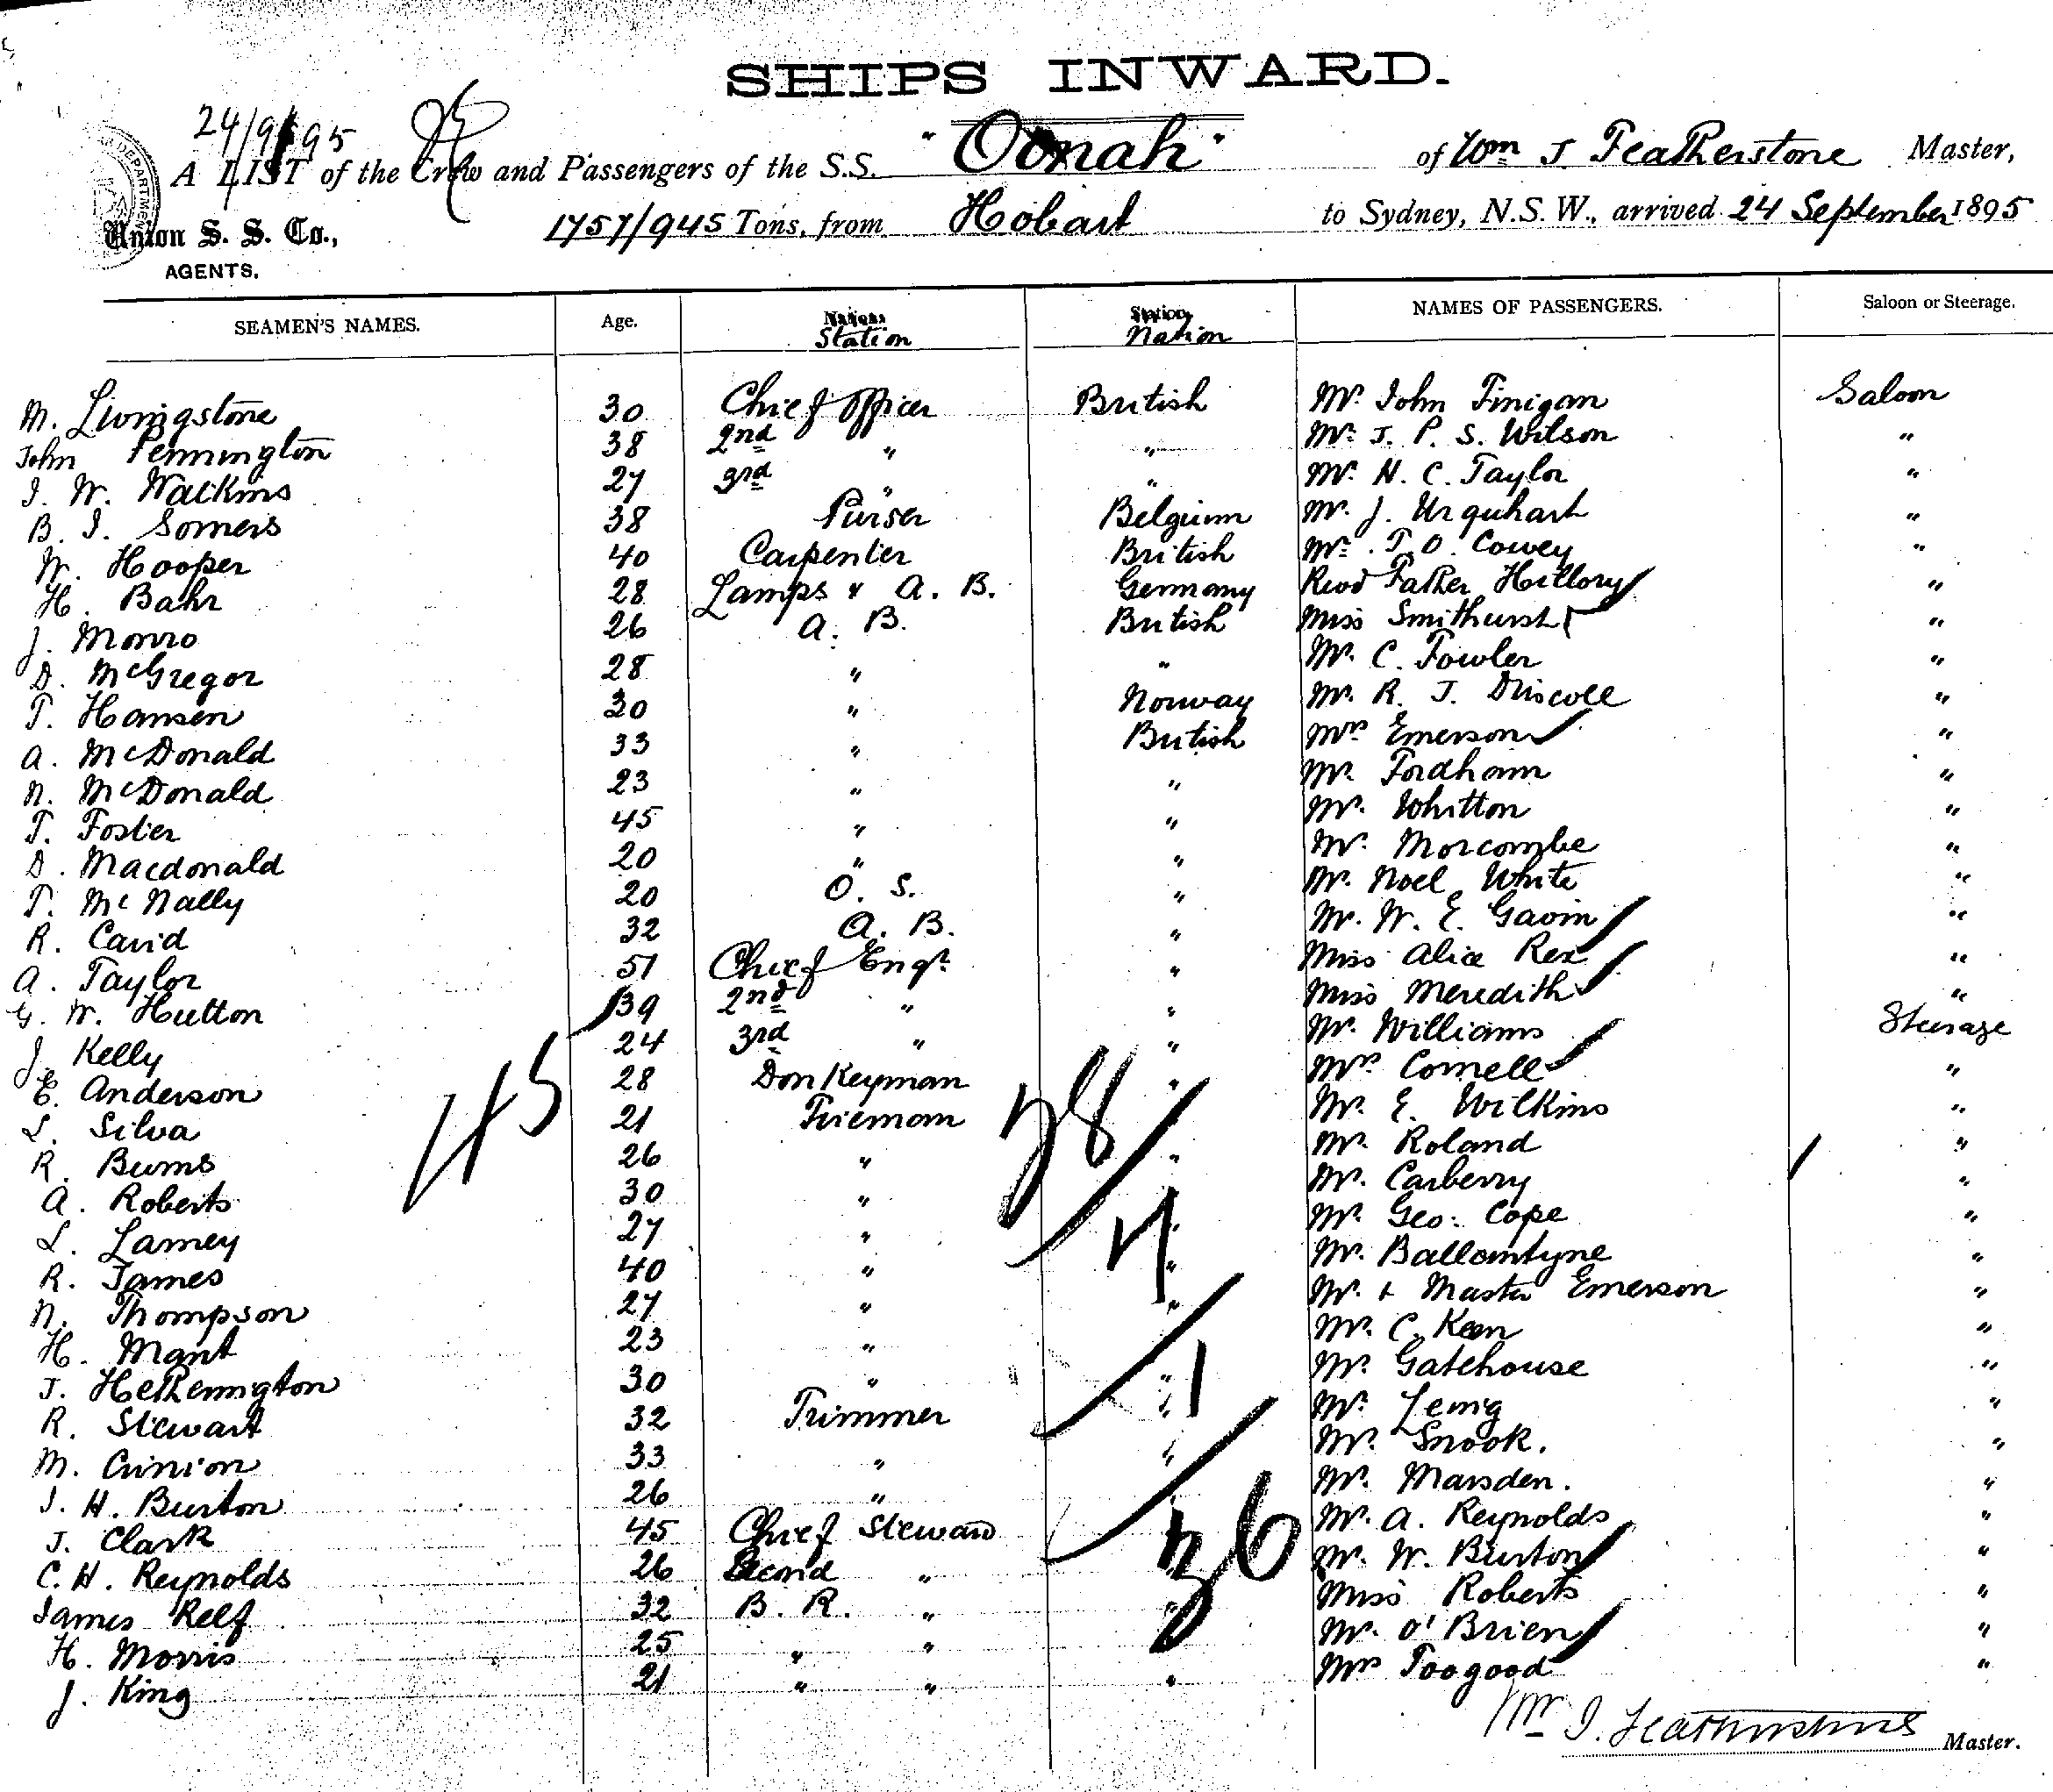 SHIPS INWARD.
24/9/95
A LIST of the Crew and Passengers of the S.S. "Oonah" of Wm J Featherstone Master,
Union S. S. Co., 1757/945 Tons, from Hobart to Sydney, N.S.W., arrived 24 September 1895
AGENTS.
SEAMEN'S NAMES. Age. Station Nation NAMES OF PASSENGERS. Saloon or Steerage.
M. Livingstone 30 Chief Officer British Mr. John Finigan Saloon
John Pennington 38 2nd " " Mr. J. P. S. Wilson "
J. W. Watkins 27 3rd " " Mr. H. C. Taylor "
B. J. Somers 38 Purser Belgium Mr. J. Urquhart "
W. Hooper 40 Carpenter British Mr. T. O. Cowey "
H. Bahr 28 Lamps & A. B. Germany Revd Father Hillory "
J. Monro 26 A. B. British Miss Smithurst "
D. McGregor 28 " " Mr. C. Fowler "
T. Hansen 30 " Norway Mr. R. J. Driscoll "
A. McDonald 33 " British Mrs Emerson "
N. McDonald 23 " " Mr. Fordham "
T. Foster 45 " " Mr. Whitton "
D. Macdonald 20 " " Mr. Morcombe "
T. McNally 20 O. S. " Mr. Noel White "
R. Cavid 32 A. B. " Mr. W. E. Gavin "
A. Taylor 51 Chief Engr. " Miss Alice Rex "
G. W. Hutton 39 2nd " " Miss Meredith "
J. Kelly 24 3rd " " Mr. Williams Steerage
E. Anderson 28 Donkeyman " Mrs Cornell "
L. Silva 21 Fireman " Mr. E. Wilkins "
R. Burns 26 " " Mr. Roland "
A. Roberts 30 " " Mr. Carberry "
L. Lamey 27 " " Mr. Geo: Cope "
R. James 40 " " Mr. Ballantyne "
N. Thompson 27 " " Mr. & Master Emerson "
H. Mant 23 " " Mr. C. Keen "
J. Hetherington 30 " " Mr. Gatehouse "
R. Stewart 32 Trimmer " Mr. "
M. Crinion 33 " " Mr. Snook. "
J. H. Burton 26 " " Mr. Marsden. "
J. Clark 45 Chief Steward " Mr. A. Reynolds "
C. H. Reynolds 26 Second " " Mr. W. Burton "
James Relf 32 B. R. " " Miss Roberts "
H. Morris 25 " " " Mr. O'Brien "
J. King 21 " " " Mrs Toogood "
45
28
1
Wm J. Featherstone Master.